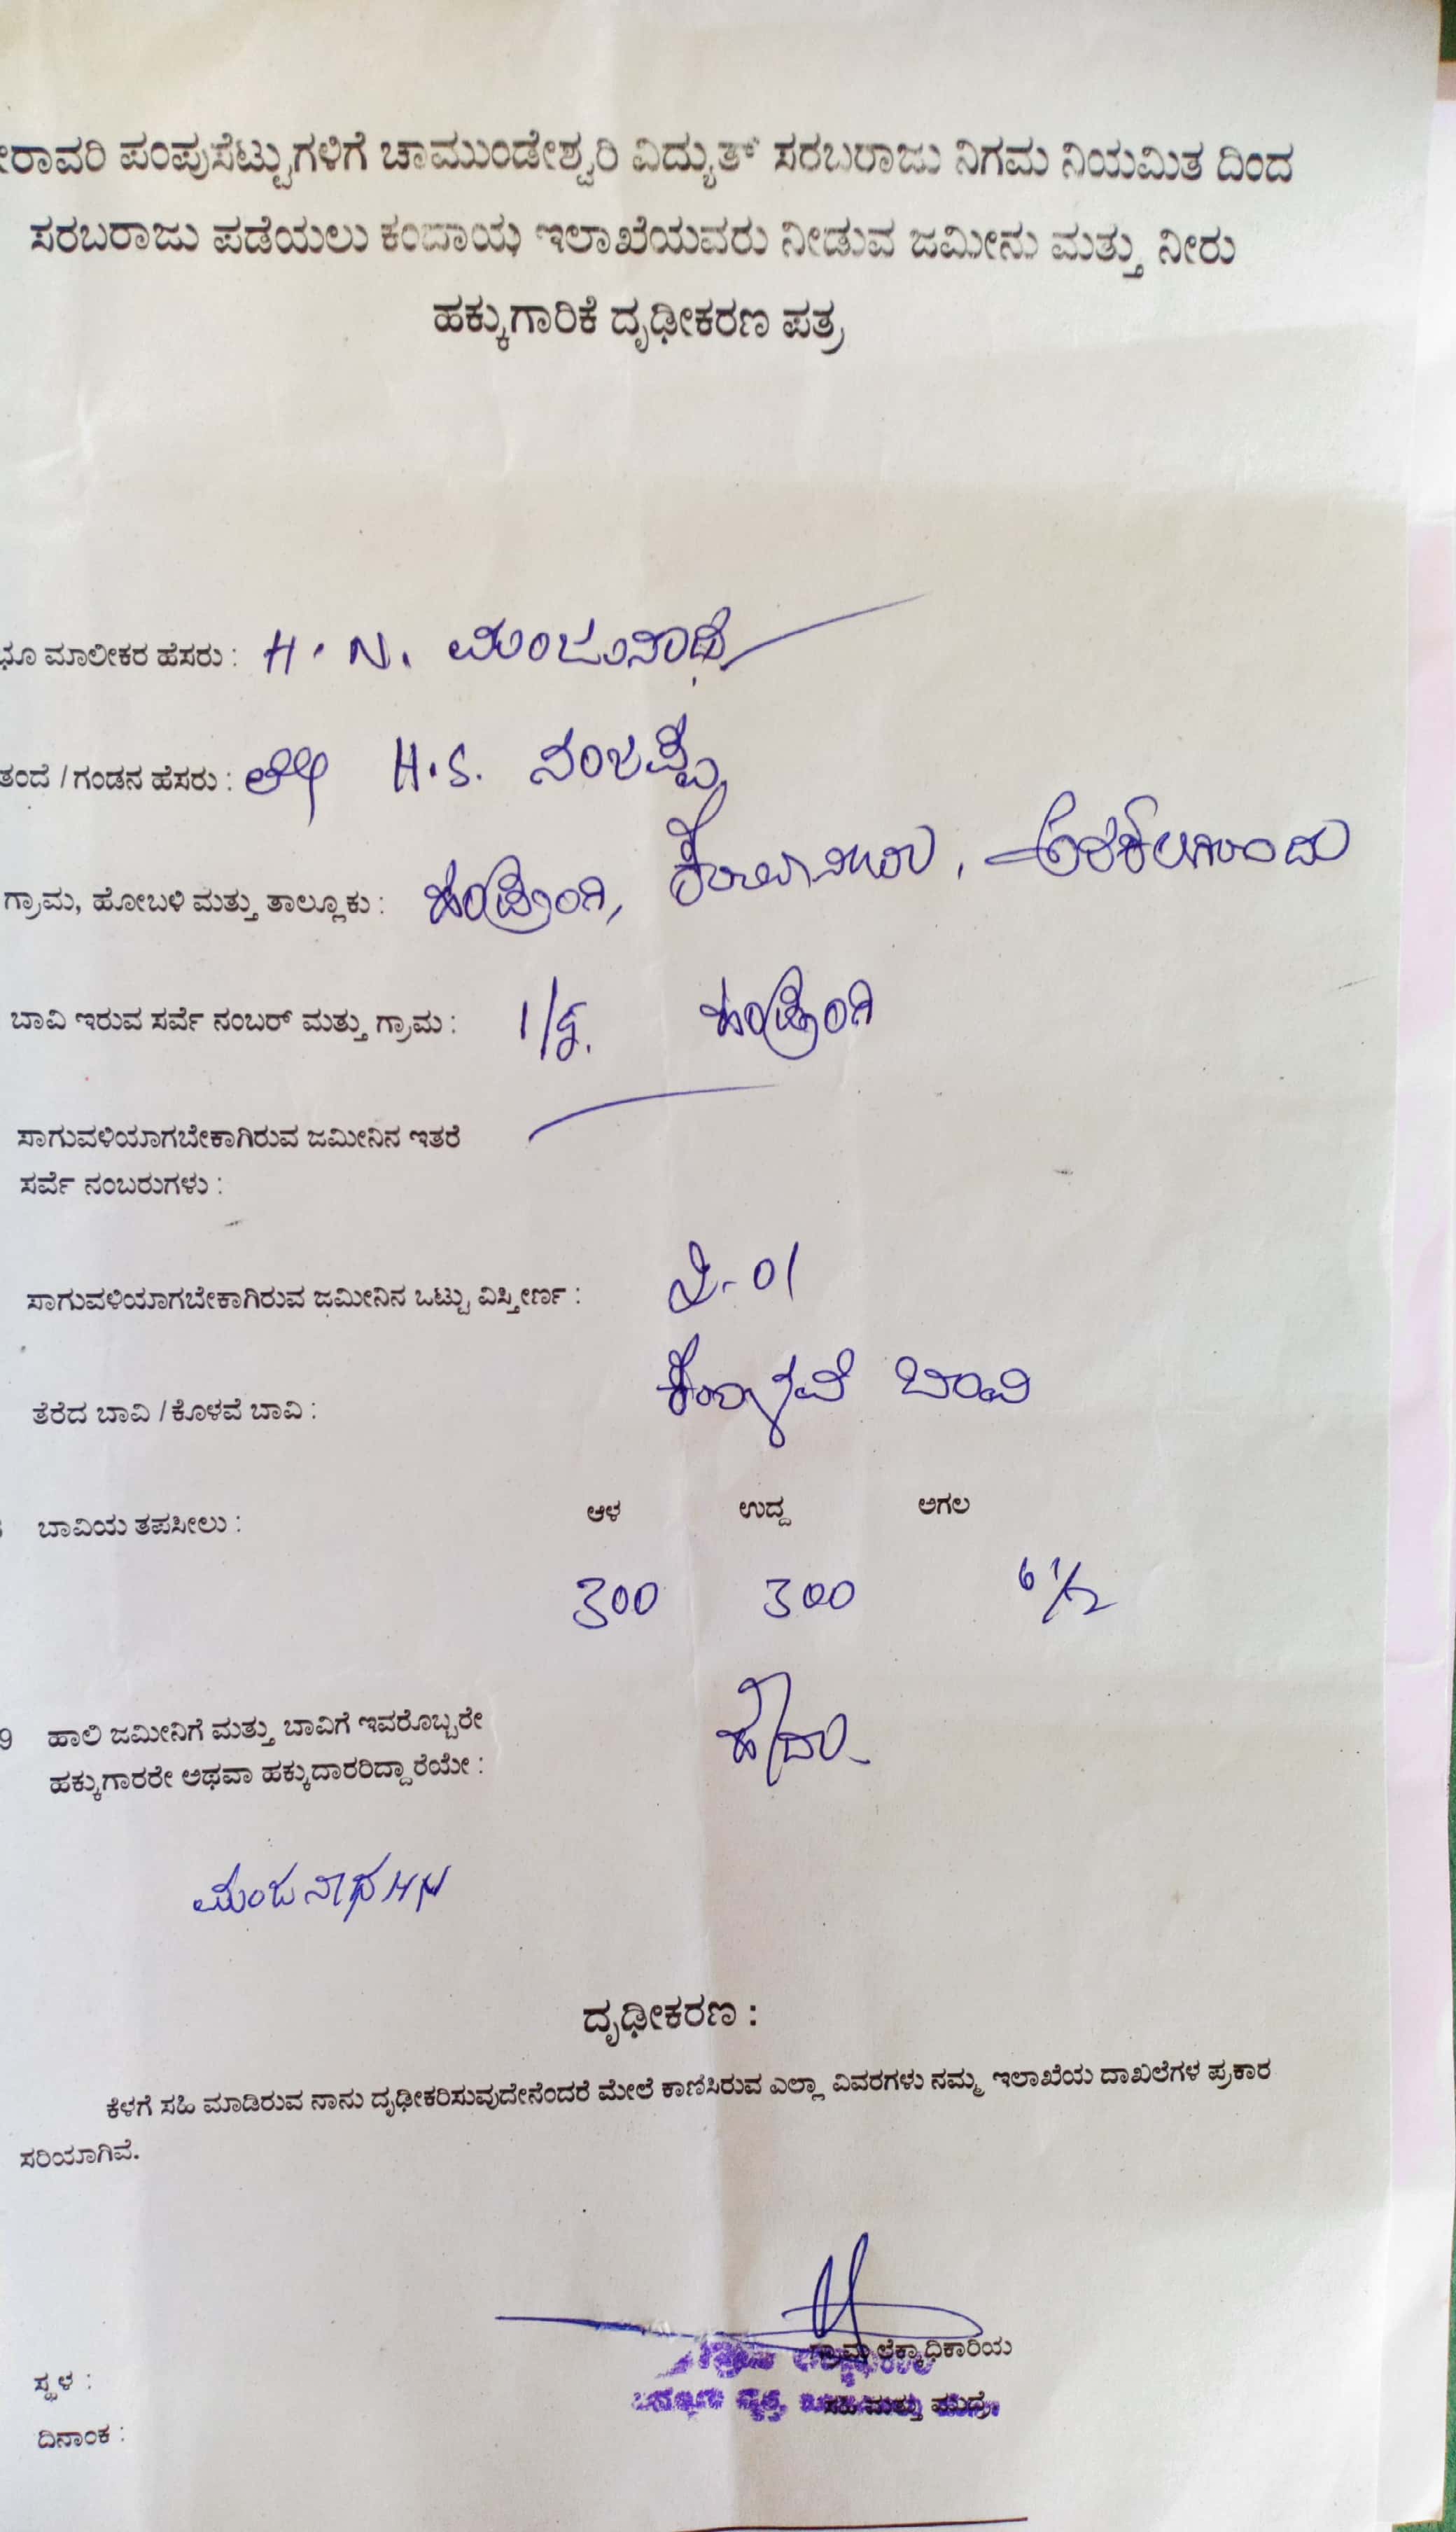 ರಾವರಿ ಪಂಪುಸೆಟ್ಟುಗಳಿಗೆ ಚಾಮುಂಡೇಶ್ವರಿ ವಿದ್ಯುತ್ ಸರಬರಾಜು ನಿಗಮ ನಿಯಮಿತ ದಿಂದ
ಸರಬರಾಜು ಪಡೆಯಲು ಕಂದಾಯ ಇಲಾಖೆಯವರು ನೀಡುವ ಜಮೀನು ಮತ್ತು ನೀರು
ಹಕ್ಕುಗಾರಿಕೆ ದೃಢೀಕರಣ ಪತ್ರ
ಭೂ ಮಾಲೀಕರ ಹೆಸರು : H. N. ಮಂಜುನಾಥ
ತಂದೆ / ಗಂಡನ ಹೆಸರು : H.S. ನಂಜಪ್ಪ
ಗ್ರಾಮ, ಹೋಬಳಿ ಮತ್ತು ತಾಲ್ಲೂಕು : ಹಂಡ್ರಂಗಿ, ಅರಕಲಗೂಡು
ಬಾವಿ ಇರುವ ಸರ್ವೆ ನಂಬರ್ ಮತ್ತು ಗ್ರಾಮ : ಹಂಡ್ರಂಗಿ
ಸಾಗುವಳಿಯಾಗಬೇಕಾಗಿರುವ ಜಮೀನಿನ ಇತರೆ
ಸರ್ವೆ ನಂಬರುಗಳು :
ಸಾಗುವಳಿಯಾಗಬೇಕಾಗಿರುವ ಜಮೀನಿನ ಒಟ್ಟು ವಿಸ್ತೀರ್ಣ : 2-01
ತೆರೆದ ಬಾವಿ / ಕೊಳವೆ ಬಾವಿ : ಕೊಳವೆ ಬಾವಿ
ಬಾವಿಯ ತಪಸೀಲು : ಆಳ ಉದ್ದ ಅಗಲ
300 300 6 1/2
9 ಹಾಲಿ ಜಮೀನಿಗೆ ಮತ್ತು ಬಾವಿಗೆ ಇವರೊಬ್ಬರೇ
ಹಕ್ಕುಗಾರರೇ ಅಥವಾ ಹಕ್ಕುದಾರರಿದ್ದಾರೆಯೇ : ಹೌದು
ಮಂಜುನಾಥ H N
ದೃಢೀಕರಣ :
ಕೆಳಗೆ ಸಹಿ ಮಾಡಿರುವ ನಾನು ದೃಢೀಕರಿಸುವುದೇನೆಂದರೆ ಮೇಲೆ ಕಾಣಿಸಿರುವ ಎಲ್ಲಾ ವಿವರಗಳು ನಮ್ಮ ಇಲಾಖೆಯ ದಾಖಲೆಗಳ ಪ್ರಕಾರ
ಸರಿಯಾಗಿವೆ.
ಗ್ರಾಮ ಲೆಕ್ಕಾಧಿಕಾರಿಯ
ಸ್ಥಳ :
ಸಹಿ ಮತ್ತು ಮುದ್ರೆ
ದಿನಾಂಕ :